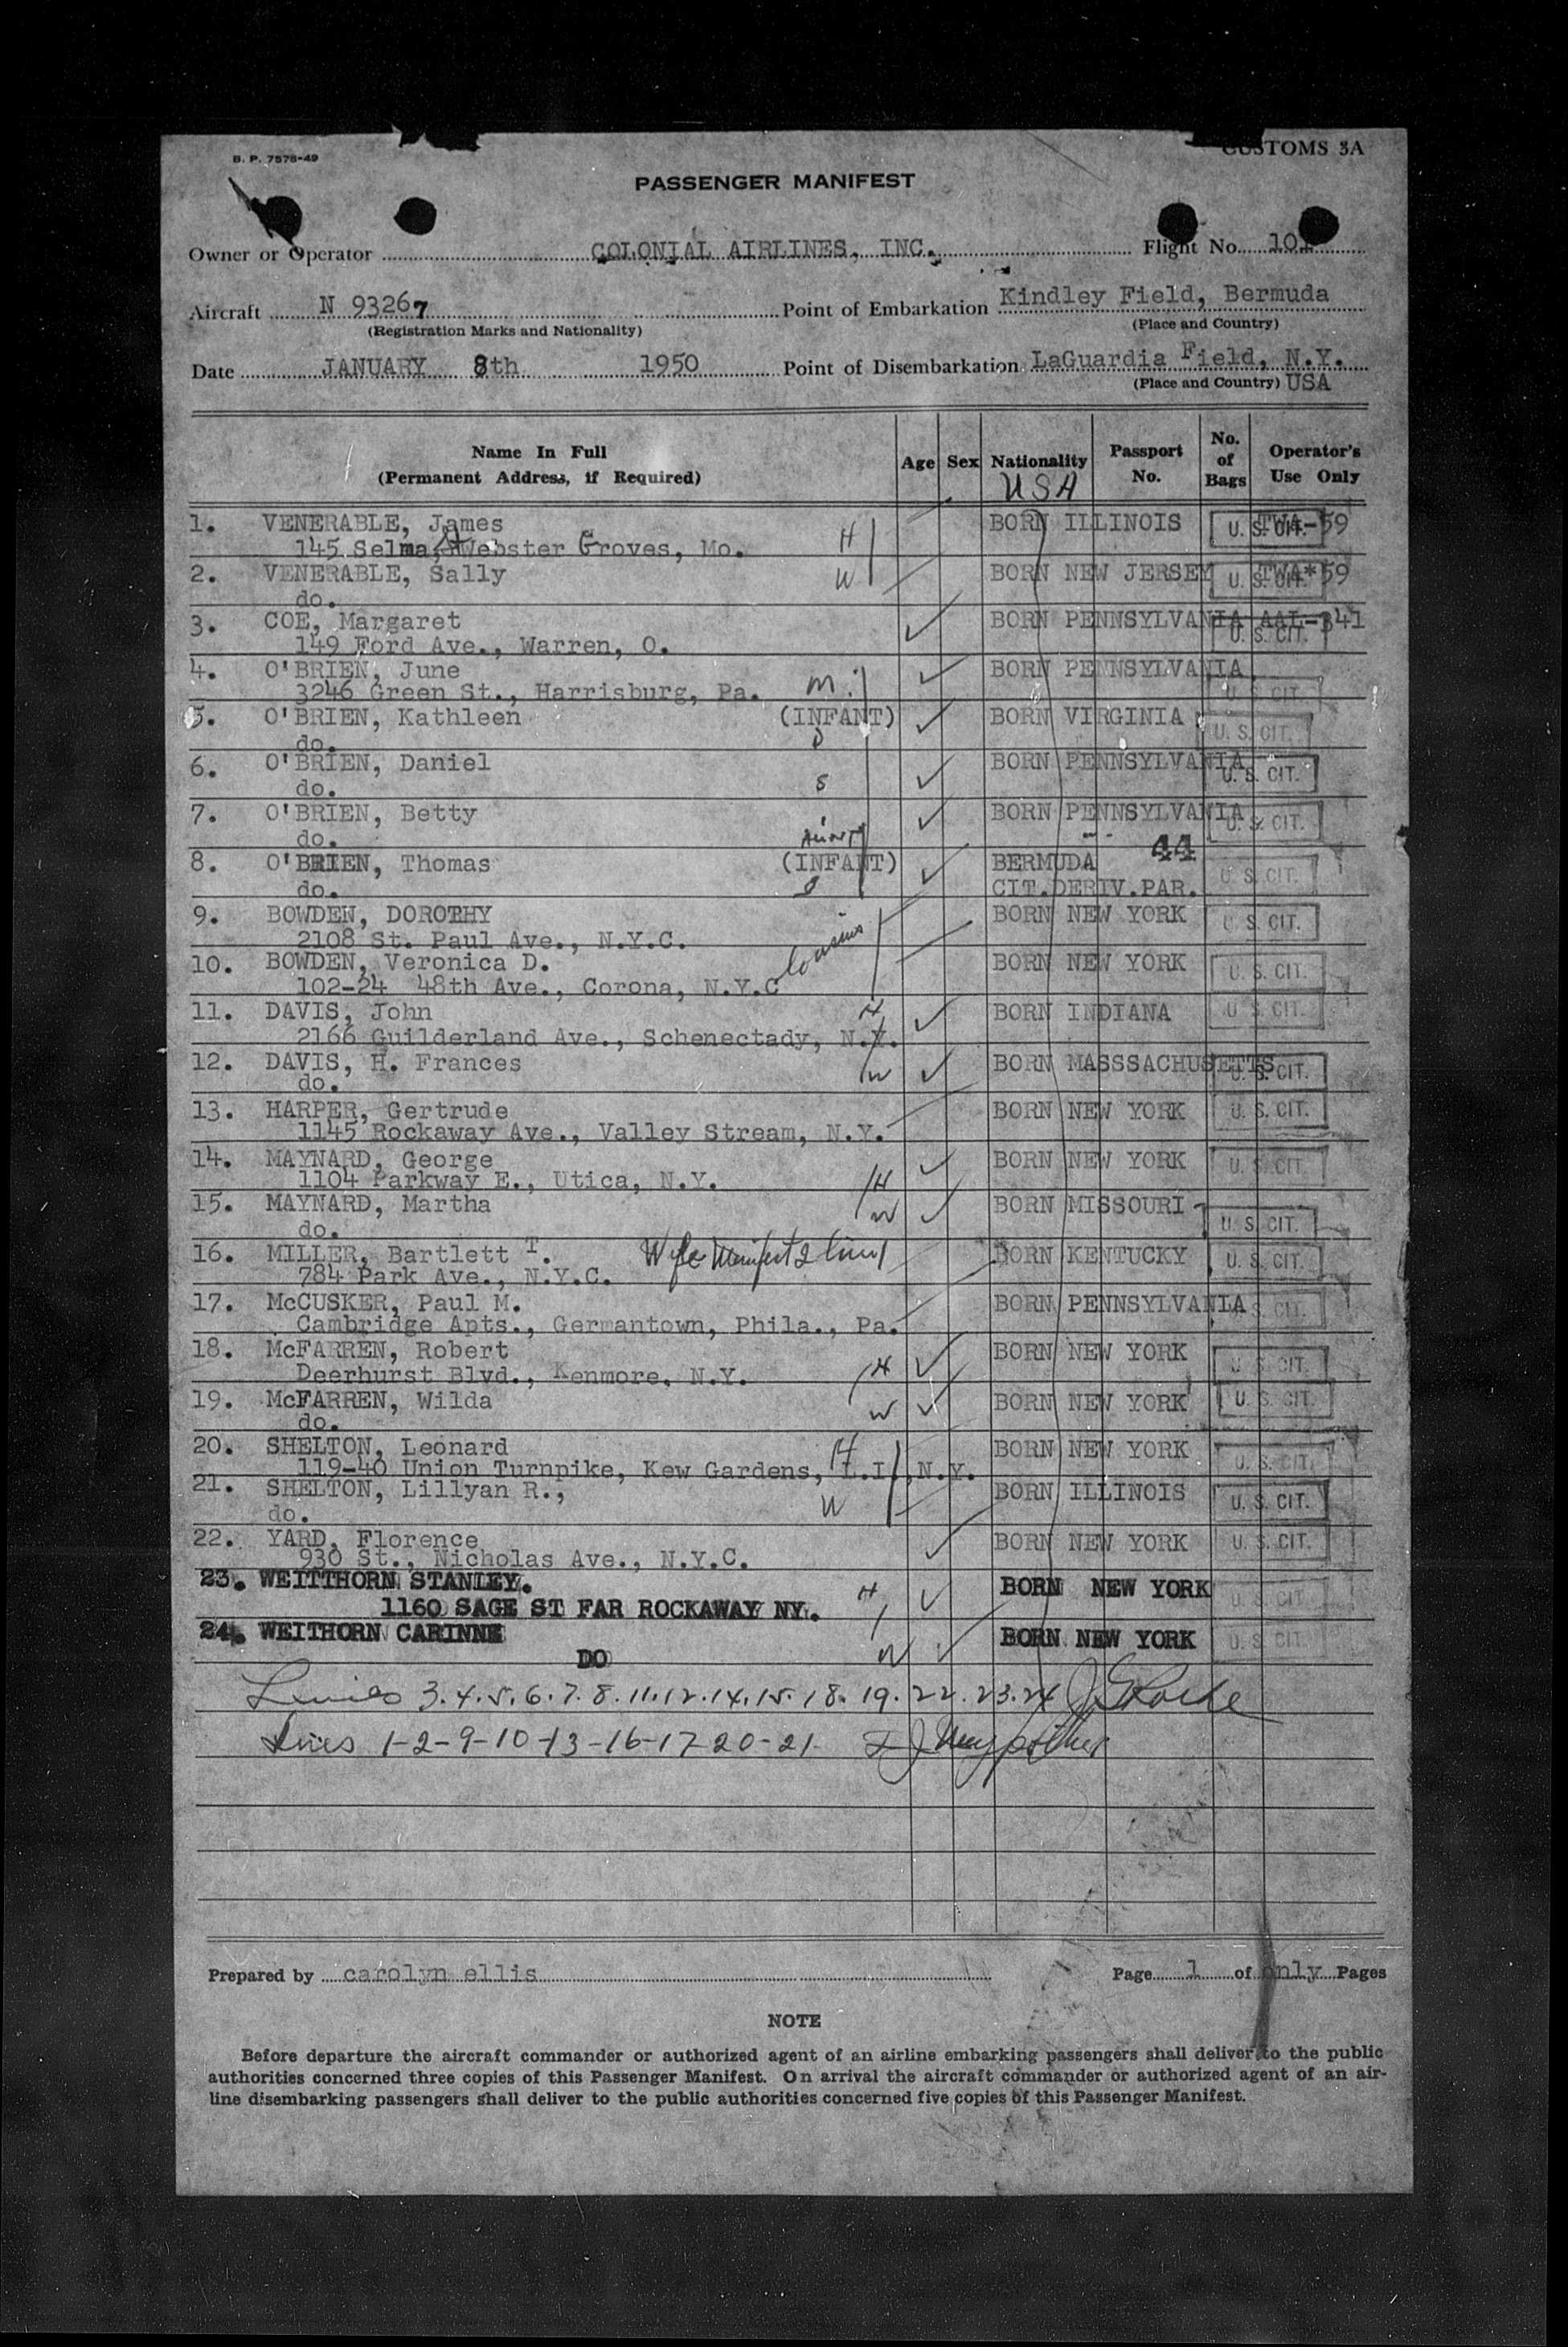 B. P. 7578-49
CUSTOMS 3A
PASSENGER MANIFEST
Owner or Operator COLONIAL AIRLINES, INC. Flight No. 101
Aircraft N 93267 Point of Embarkation Kindley Field, Bermuda
(Registration Marks and Nationality) (Place and Country)
Date JANUARY 8th 1950 Point of Disembarkation LaGuardia Field, N.Y.
(Place and Country) USA
Name In Full
(Permanent Address, if Required) Age Sex Nationality Passport No. No. of Bags Operator's Use Only
USA
1. VENERABLE, James H BORN ILLINOIS U. S. CIT. TWA-59
145 Selma, Webster Groves, Mo.
2. VENERABLE, Sally W BORN NEW JERSEY U. S. CIT. TWA*59
do.
3. COE, Margaret BORN PENNSYLVANIA U. S. CIT. AAL-341
149 Ford Ave., Warren, O.
4. O'BRIEN, June BORN PENNSYLVANIA U. S. CIT.
3246 Green St., Harrisburg, Pa. M
5. O'BRIEN, Kathleen (INFANT) BORN VIRGINIA U. S. CIT.
do. D
6. O'BRIEN, Daniel BORN PENNSYLVANIA U. S. CIT.
do. S
7. O'BRIEN, Betty BORN PENNSYLVANIA U. S. CIT.
do. Aunt
8. O'BRIEN, Thomas (INFANT) BERMUDA 44 U. S. CIT.
do. S CIT.DERIV.PAR.
9. BOWDEN, DOROTHY BORN NEW YORK U. S. CIT.
2108 St. Paul Ave., N.Y.C. Cousins
10. BOWDEN, Veronica D. BORN NEW YORK U. S. CIT.
102-24 48th Ave., Corona, N.Y.C
11. DAVIS, John H BORN INDIANA U. S. CIT.
2166 Guilderland Ave., Schenectady, N.Y.
12. DAVIS, H. Frances W BORN MASSSACHUSETTS U. S. CIT.
do.
13. HARPER, Gertrude BORN NEW YORK U. S. CIT.
1145 Rockaway Ave., Valley Stream, N.Y.
14. MAYNARD, George BORN NEW YORK U. S. CIT.
1104 Parkway E., Utica, N.Y. H
15. MAYNARD, Martha W BORN MISSOURI U. S. CIT.
do.
16. MILLER, Bartlett T. Wife Manifest 2 line 1 BORN KENTUCKY U. S. CIT.
784 Park Ave., N.Y.C.
17. McCUSKER, Paul M. BORN PENNSYLVANIA U. S. CIT.
Cambridge Apts., Germantown, Phila., Pa.
18. McFARREN, Robert BORN NEW YORK U. S. CIT.
Deerhurst Blvd., Kenmore, N.Y. H
19. McFARREN, Wilda W BORN NEW YORK U. S. CIT.
do.
20. SHELTON, Leonard H BORN NEW YORK U. S. CIT.
119-40 Union Turnpike, Kew Gardens, L.I.,N.Y.
21. SHELTON, Lillyan R., W BORN ILLINOIS U. S. CIT.
do.
22. YARD, Florence BORN NEW YORK U. S. CIT.
930 St., Nicholas Ave., N.Y.C.
23. WEITTHORN STANLEY. H BORN NEW YORK U. S. CIT.
1160 SAGE ST FAR ROCKAWAY NY.
24. WEITHORN CARINNE W BORN NEW YORK U. S. CIT.
DO
Lines 3.4.5.6.7.8.11.12.14.15.18.19.22.23.24
Lines 1-2-9-10-13-16-17-20-21
Prepared by carolyn ellis Page 1 of only Pages
NOTE
Before departure the aircraft commander or authorized agent of an airline embarking passengers shall deliver to the public
authorities concerned three copies of this Passenger Manifest. On arrival the aircraft commander or authorized agent of an air-
line disembarking passengers shall deliver to the public authorities concerned five copies of this Passenger Manifest.